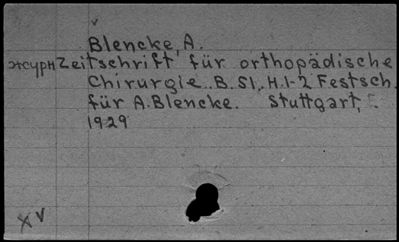 Blencke, A.
журн Zeitschrift für orthopädische
Chirurgie. B. 51, H. 1-2 Festsch.
für A. Blencke. Stuttgart,
1929
XV